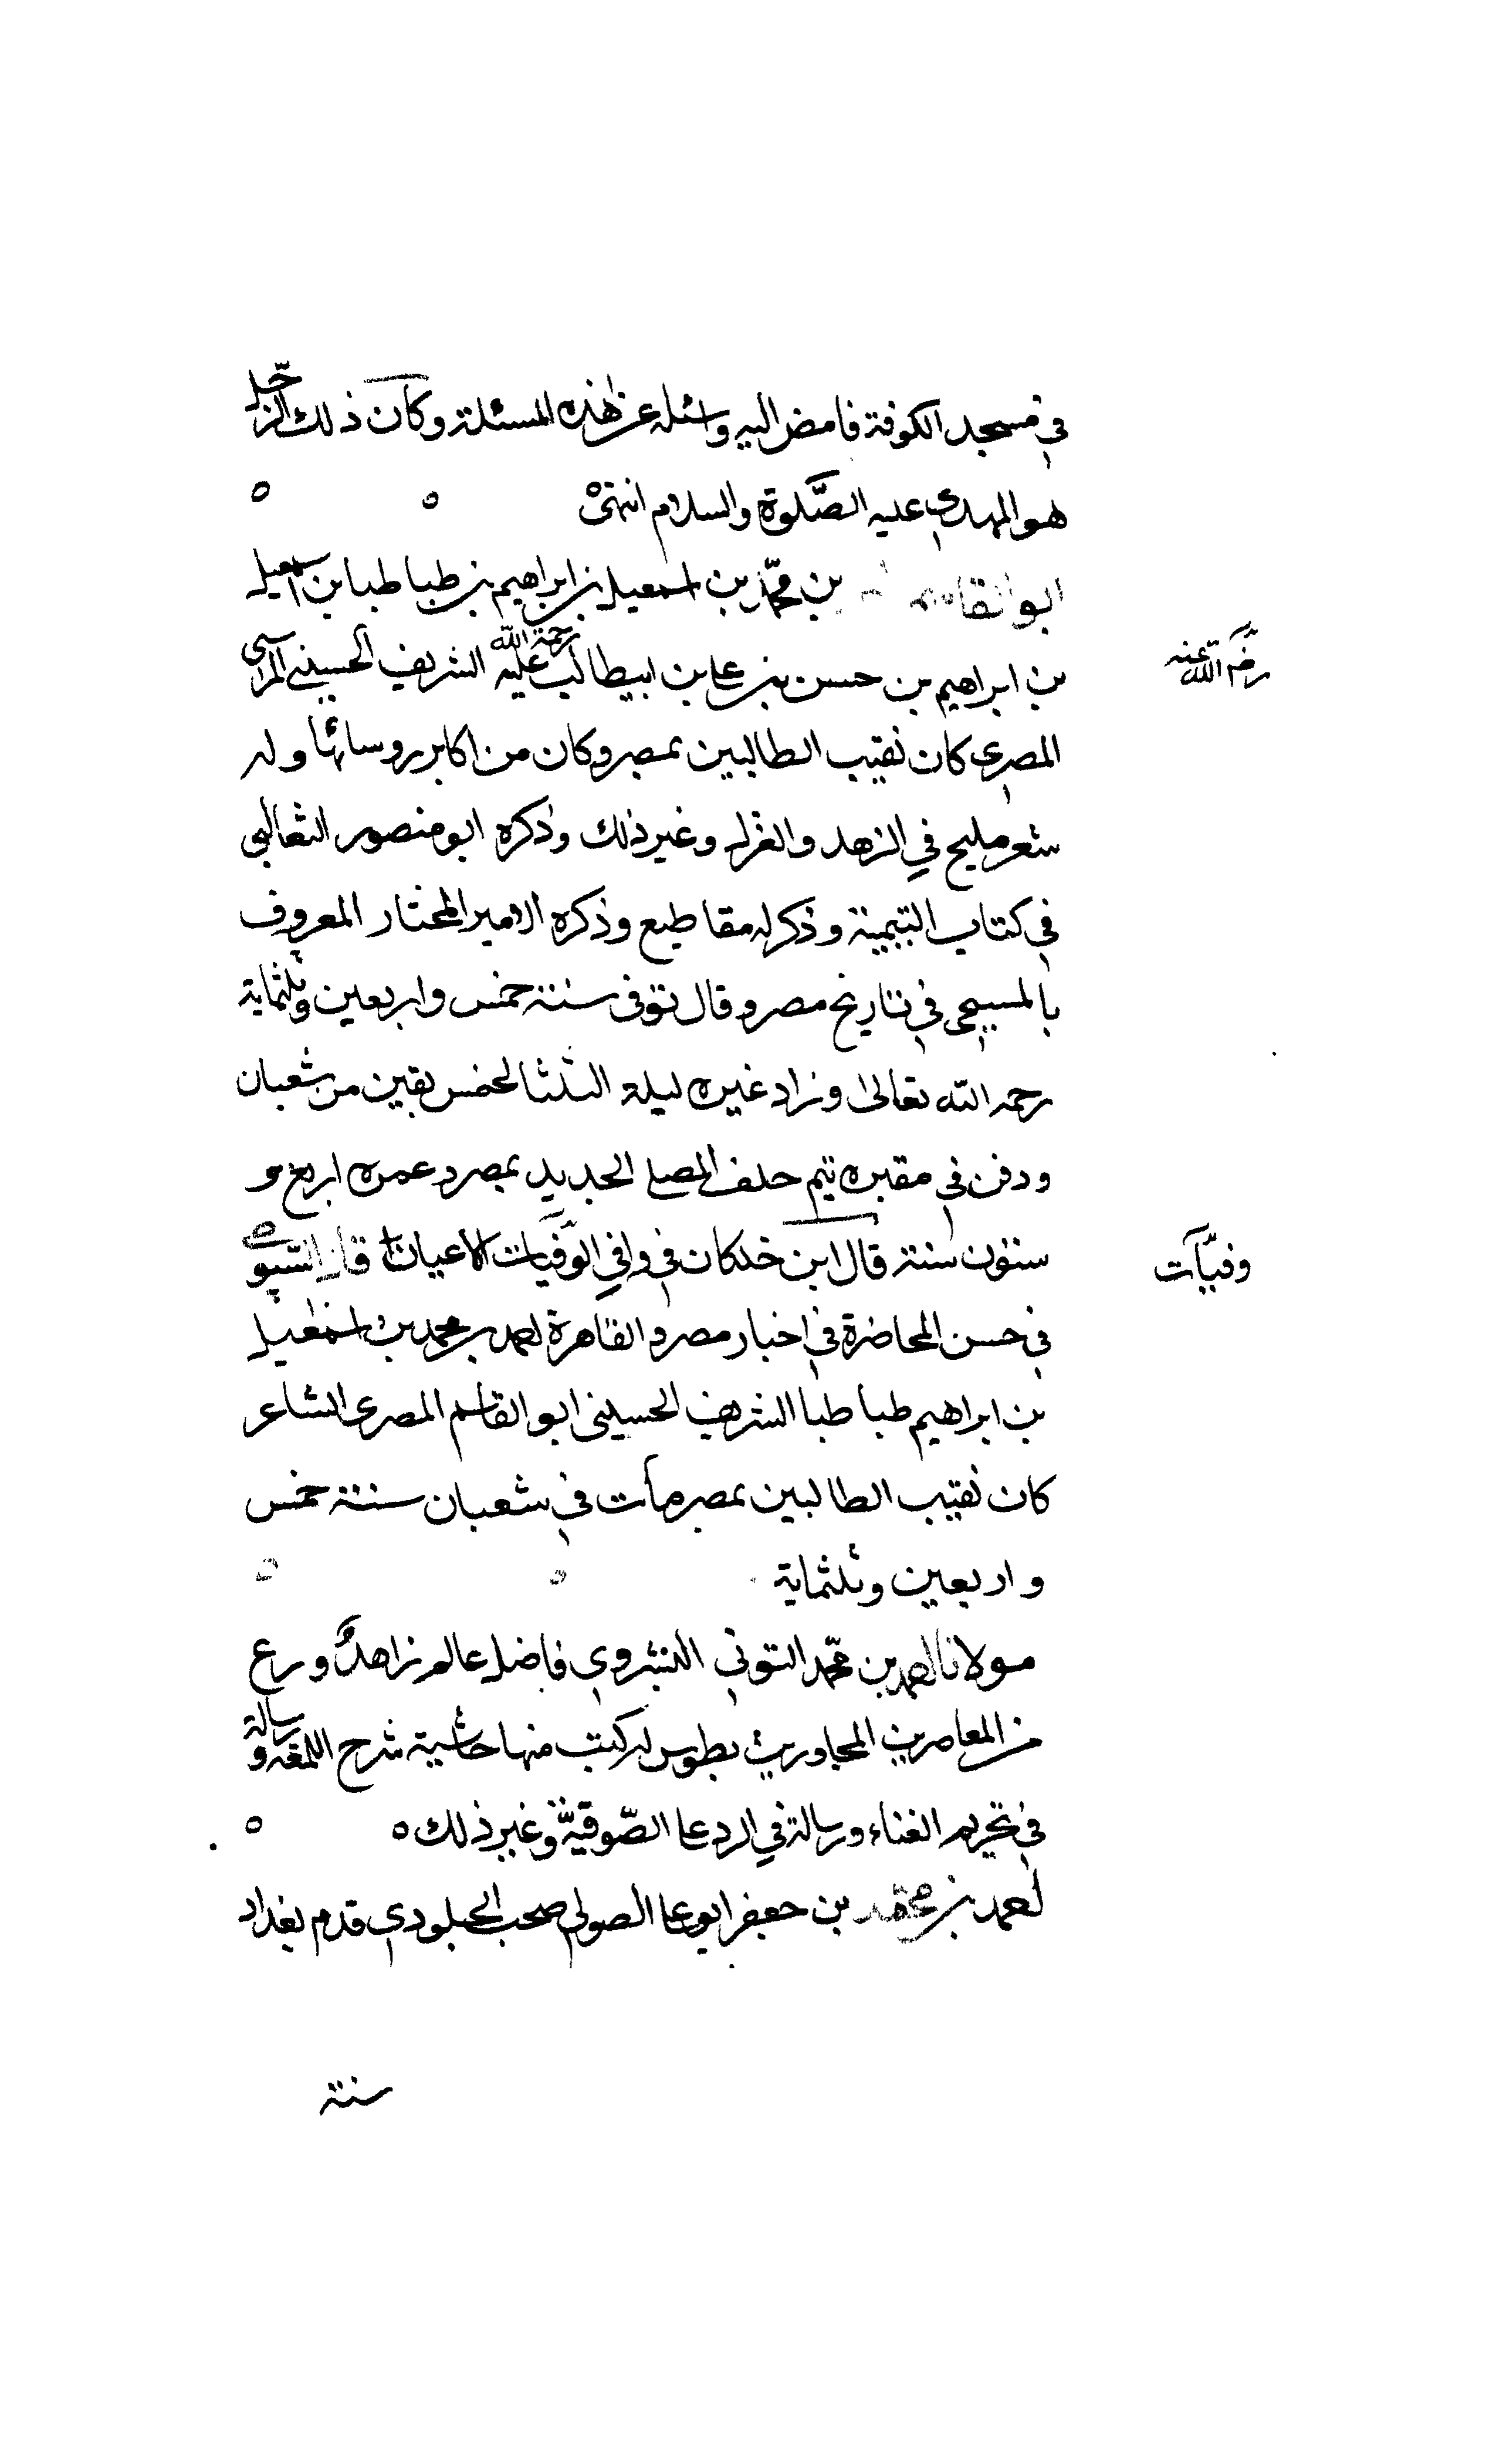 في مسجد الكوفة فامض اليه واسئله عن هذه المسئلة وكان ذلك الرجل
هو المهدي عليه الصلوة والسلام انتهى
ابو القاسم بن محمد بن اسمعيل بن ابراهيم بن طباطبا بن اسمعيل
بن ابراهيم بن حسن بن علي بن ابيطالب رحمة الله عليه الشريف الحسيني الرسي
رضي الله عنه
المصري كان نقيب الطالبين بمصر وكان من اكابر روسائها وله
شعر مليح في الزهد والغزل وغير ذلك وذكره ابو منصور الثعالبي
في كتاب اليتيمة وذكر له مقاطيع وذكره الامير المختار المعروف
بالمسبحي في تاريخ مصر وقال توفي سنة خمس واربعين وثلثماية
رحمه الله تعالى وزاد غيره ليلة الثلثا لخمس بقين من شعبان
ودفن في مقبره تيم خلف المصلى الجديد بمصر وعمره اربع و
ستون سنة قال ابن خلكان في وافي الوفيات الاعيان قال السيوطي
وفيّات
في حسن المحاضرة في اخبار مصر والقاهرة احمد بن محمد بن اسمعيل
بن ابراهيم طباطبا الشريف الحسيني ابو القاسم المصري الشاعر
كان نقيب الطالبين بمصر مات في شعبان سنة خمس
واربعين وثلثماية
مولانا احمد بن محمد التوني البشروي فاضل عالم زاهد ورع
من المعاصرين المجاورين بطوس له كتب منها حاشية شرح اللمعه ورسالة
في تحريم الغناء ورسالة في الرد على الصوفيّة وغير ذلك
احمد بن محمد بن جعفر ابو علي الصولي صحب الجلودي قدم بغداد
سنة